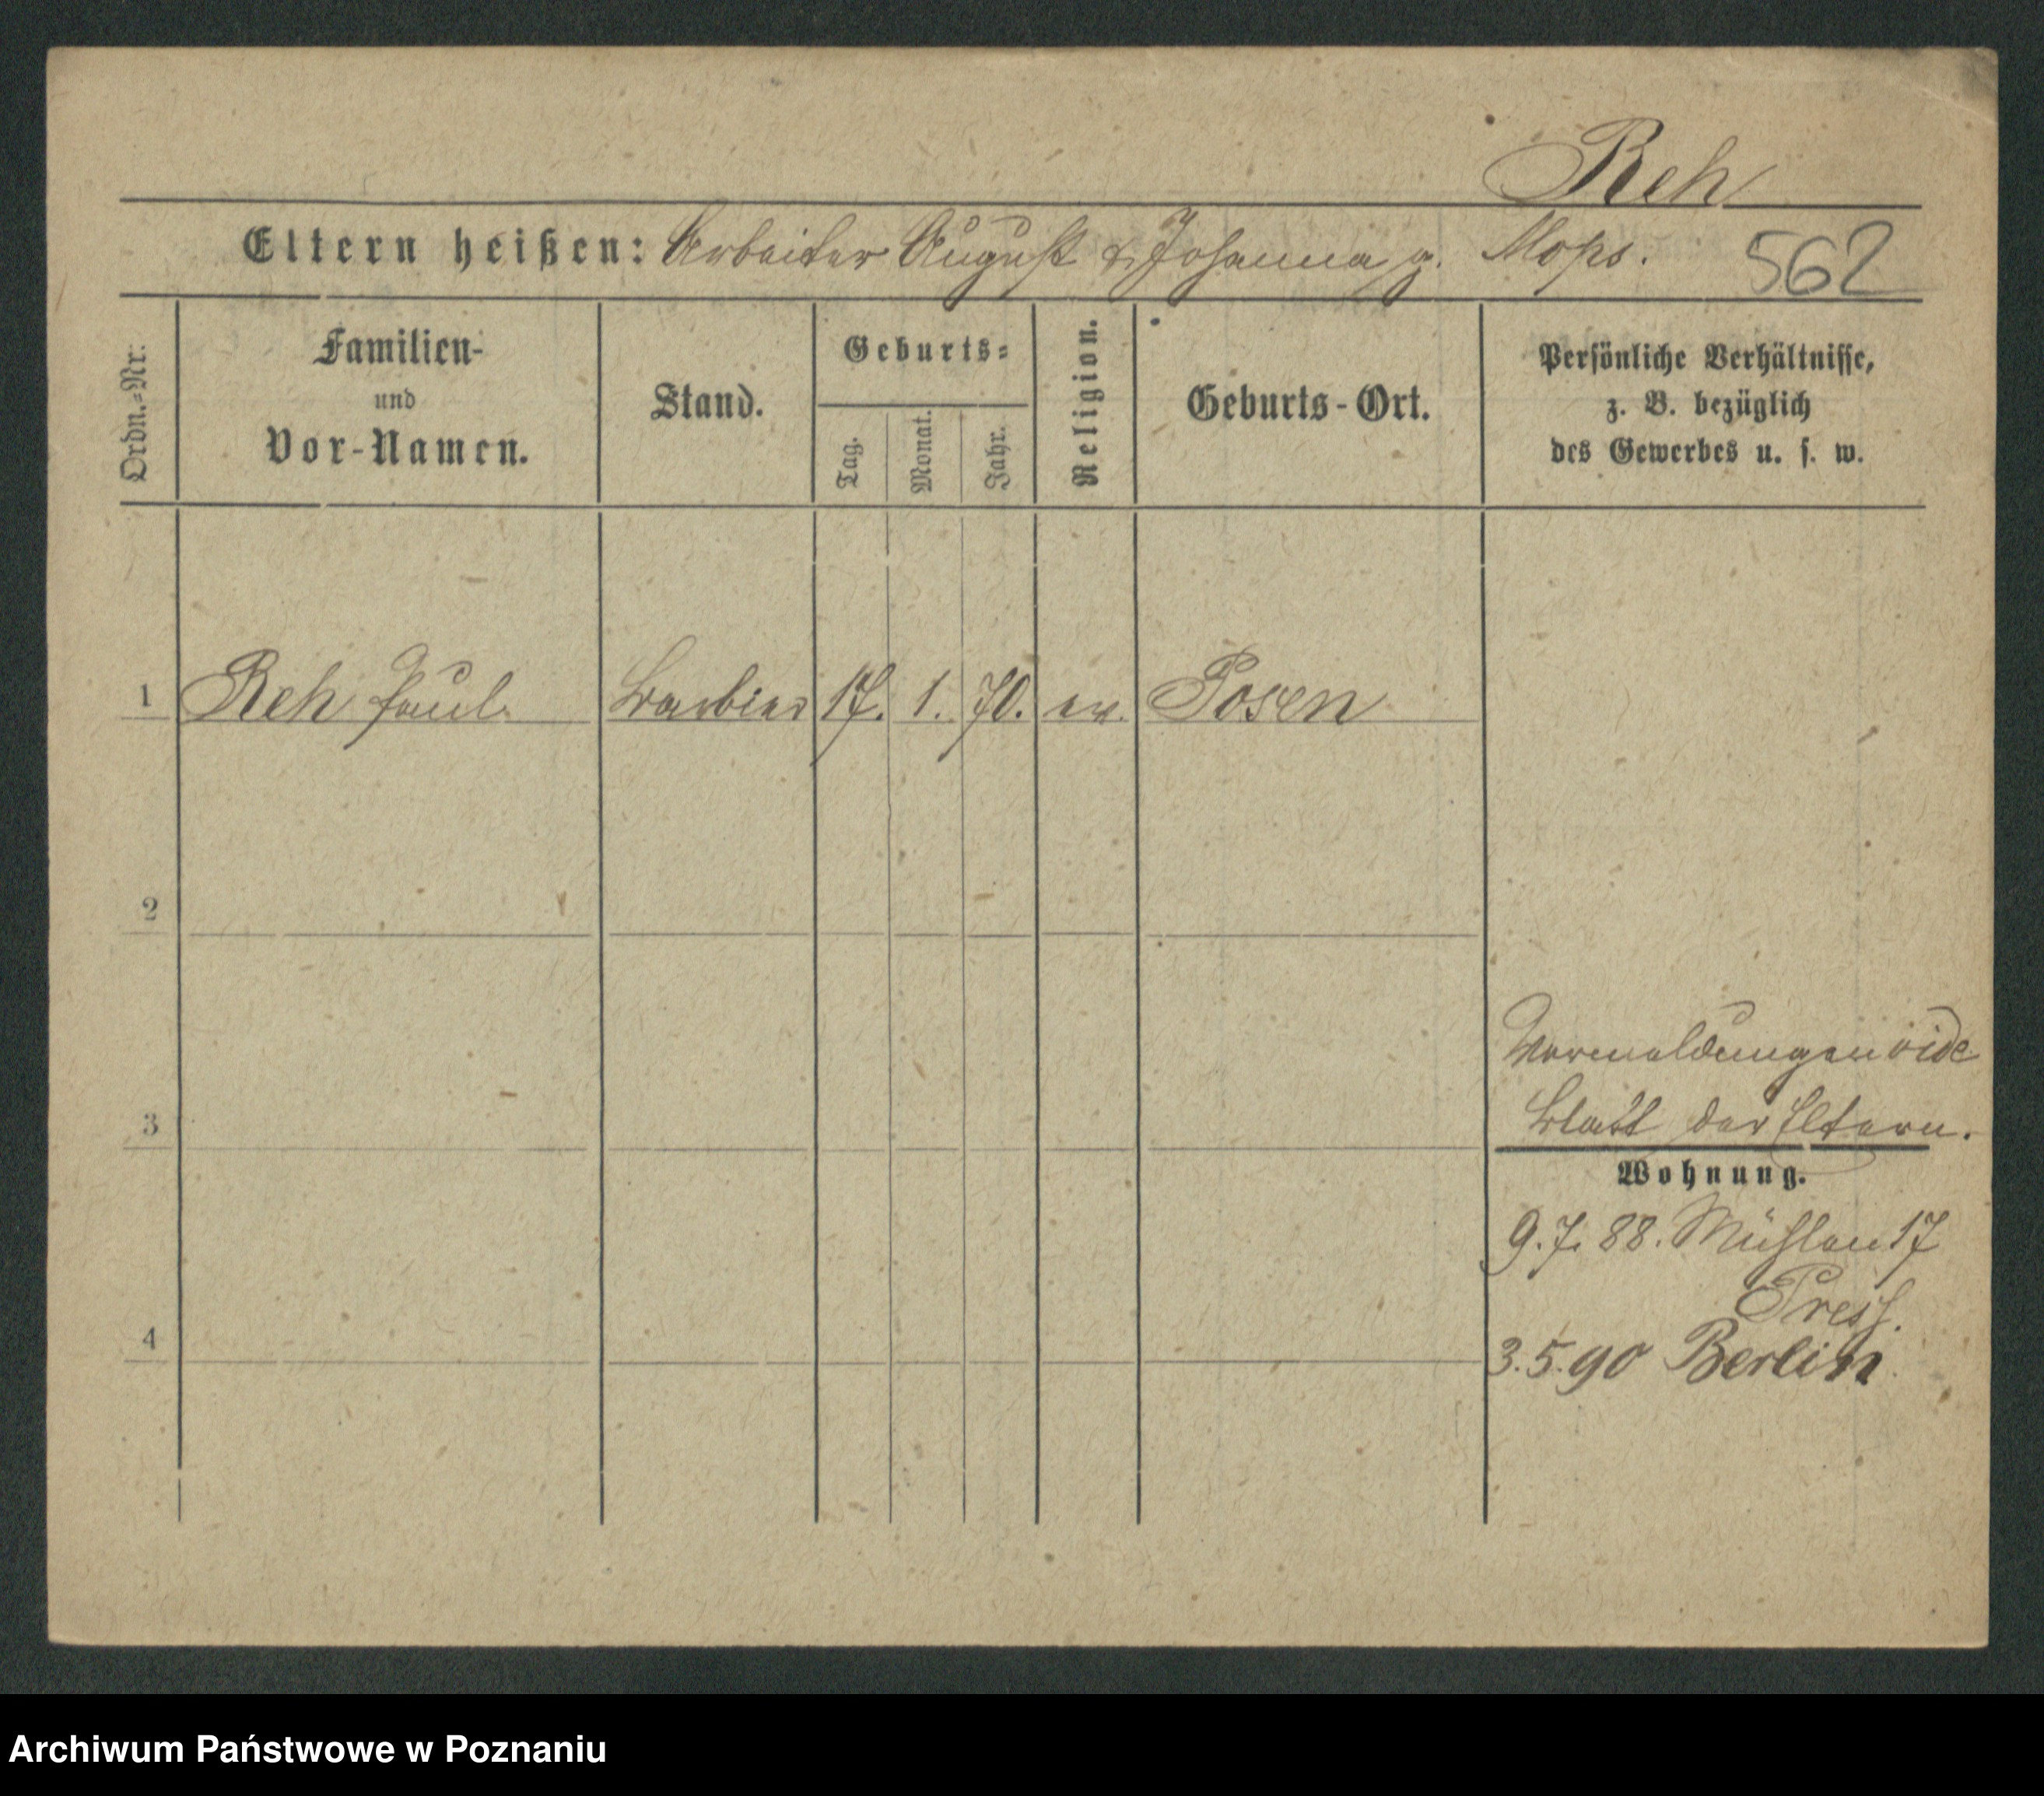 Reh
Eltern heißen: Arbeiter August & Johanna g. Mops. 562
Ordn.-Nr.
Familien-
und
Vor-Namen.
Stand.
Geburts-
Tag.
Monat.
Jahr.
Religion.
Geburts-Ort.
Persönliche Verhältnisse,
z. B. bezüglich
des Gewerbes u. s. w.
1 Reh Paul Barbier 17. 1. 70. ev. Posen
2
3
Vormeldungen vide
Blatt der Eltern.
Wohnung.
9.7.88. Mühlen 17
4
3.5.90 Berlin
Archiwum Państwowe w Poznaniu